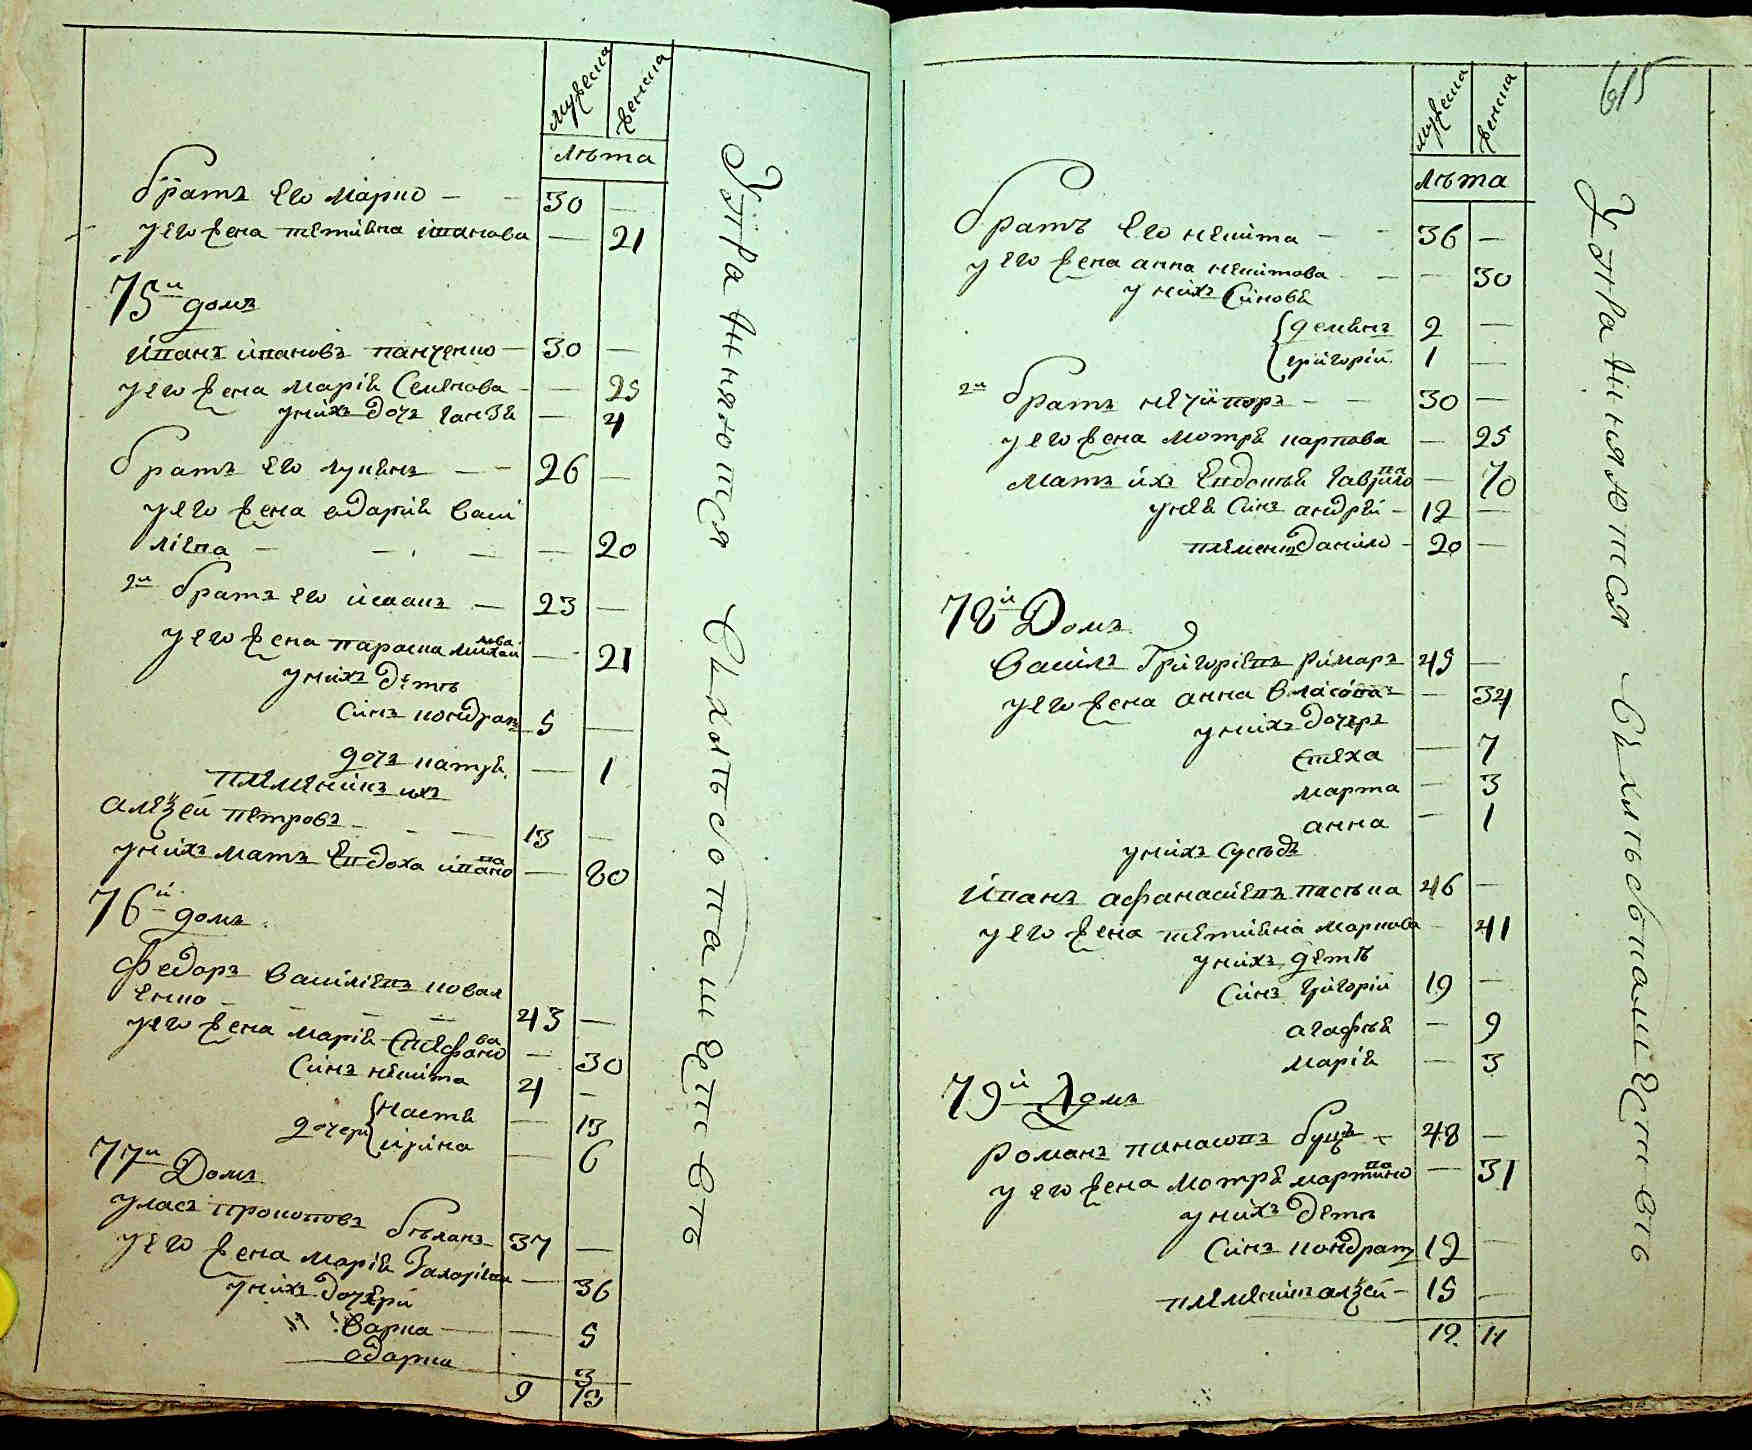 мужеска женска
лѣта
братъ его марко — — 30 —
у его жена тетияна иванова — 21
75й домъ
иванъ ивановъ панченко — 30 —
у его жена марія Семенова — — 25
у нихъ дочъ ганзя — 4
братъ его лукянъ — — 26 —
у его жена одарія васи
ліева — — — — 20
2й братъ его исаакъ — 23 —
у его жена параска михайлова — 21
у нихъ дѣтъ
синъ кондратъ 5 —
дочъ катря — 1
племеникъ ихъ
алеѯей петровъ — — — 13 —
у нихъ матъ Евдоха иванова — 80
76й домъ
Федоръ василіевъ ковал
енко — — — — 43 —
у его жена марія Стефанова — 30
Синъ никита 4 —
дочери
настя — 13
ирина — 6
77й Домъ
уласъ прокоповъ бѣланъ — 37 —
у его жена марія Захаріева — 36
у нихъ дочери
варка — — 5
одарка 3
9 13
Укра иняются Сахнѣвъ
мужеска женска
лѣта
615
братъ его никита — — 36 —
у его жена анна никитова — — — 30
у нихъ Синовя
демянъ 2 —
григорій 1 —
2й братъ нечипоръ — — 30 —
у его жена мотря карпова — 25
матъ ихъ Евдокія Гаврилова — 70
у нея Синъ андрей — 12 —
племеникъ данило — 20 —
78й Домъ
василъ Григоріевъ римаръ 45 —
у его жена анна власова — 34
у нихъ дочеръ
Стеха — 7
марта — 3
анна — 1
у нихъ Сусѣдъ
Иванъ афанасіевъ 46 —
у его жена тетияна маркова — 41
у нихъ дѣтѣ
Синъ Григорій 19 —
агафія — 9
марія — 3
79й Домъ
романъ панасовъ буцъ — 48 —
у его жена мотря мартинова — 31
у нихъ дѣтъ
Синъ кондратъ 12 —
племеникъ алеѯей — 15 —
12 11